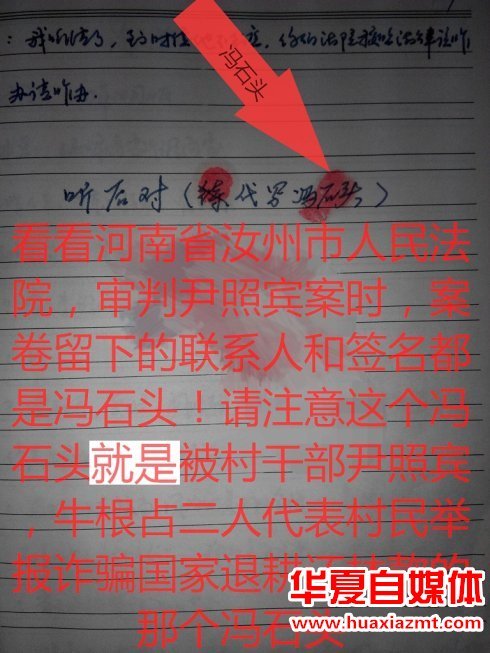 冯石头
办请咋办.
听后对(代写冯石头)
看看河南省汝州市人民法
院，审判尹照宾案时，案
卷留下的联系人和签名都
是冯石头！请注意这个冯
石头就是被村干部尹照宾
，牛根占二人代表村民举
报诈骗国家退耕还林款的
那个冯石头
华夏自媒体
www.huaxiazmt.com